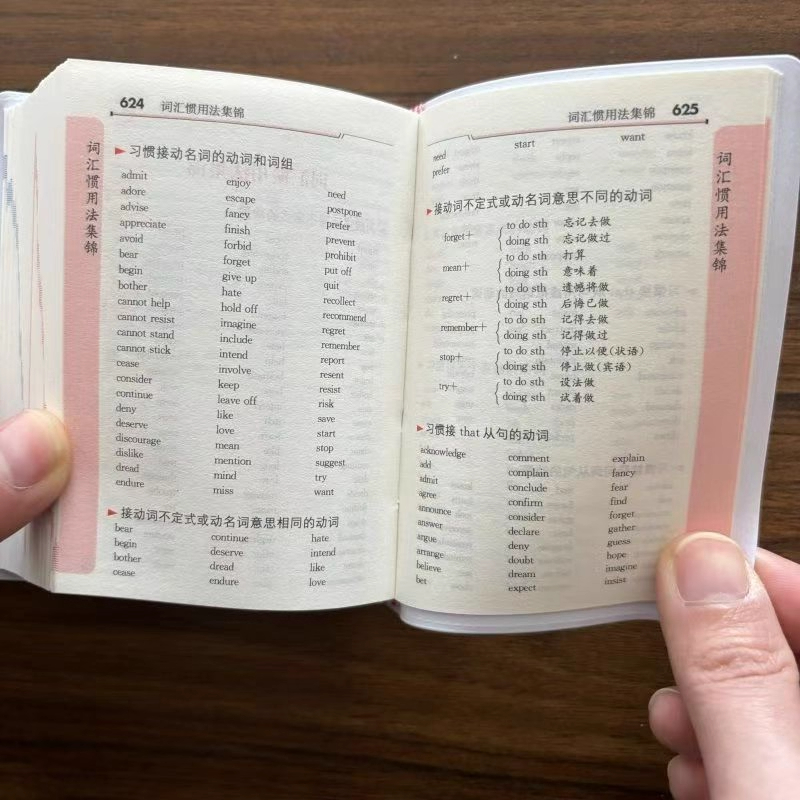 624 词汇惯用法集锦
词汇惯用法集锦
习惯接动名词的动词和词组
admit enjoy need
adore escape postpone
advise fancy prefer
appreciate finish prevent
avoid forbid prohibit
bear forget put off
begin give up quit
bother hate recollect
cannot help hold off recommend
cannot resist imagine regret
cannot stand include remember
cannot stick intend report
cease involve resent
consider keep resist
continue leave off risk
deny like save
deserve love start
discourage mean stop
dislike mention suggest
dread mind try
endure miss want
接动词不定式或动名词意思相同的动词
bear continue hate
begin deserve intend
bother dread like
cease endure love
词汇惯用法集锦 625
词汇惯用法集锦
need start want
prefer
接动词不定式或动名词意思不同的动词
forget+ { to do sth 忘记去做
doing sth 忘记做过
mean+ { to do sth 打算
doing sth 意味着
regret+ { to do sth 遗憾将做
doing sth 后悔已做
remember+ { to do sth 记得去做
doing sth 记得做过
stop+ { to do sth 停止以便(状语)
doing sth 停止做(宾语)
try+ { to do sth 设法做
doing sth 试着做
习惯接 that 从句的动词
acknowledge comment explain
add complain fancy
admit conclude fear
agree confirm find
announce consider forget
answer declare gather
argue deny guess
arrange doubt hope
believe dream imagine
bet expect insist